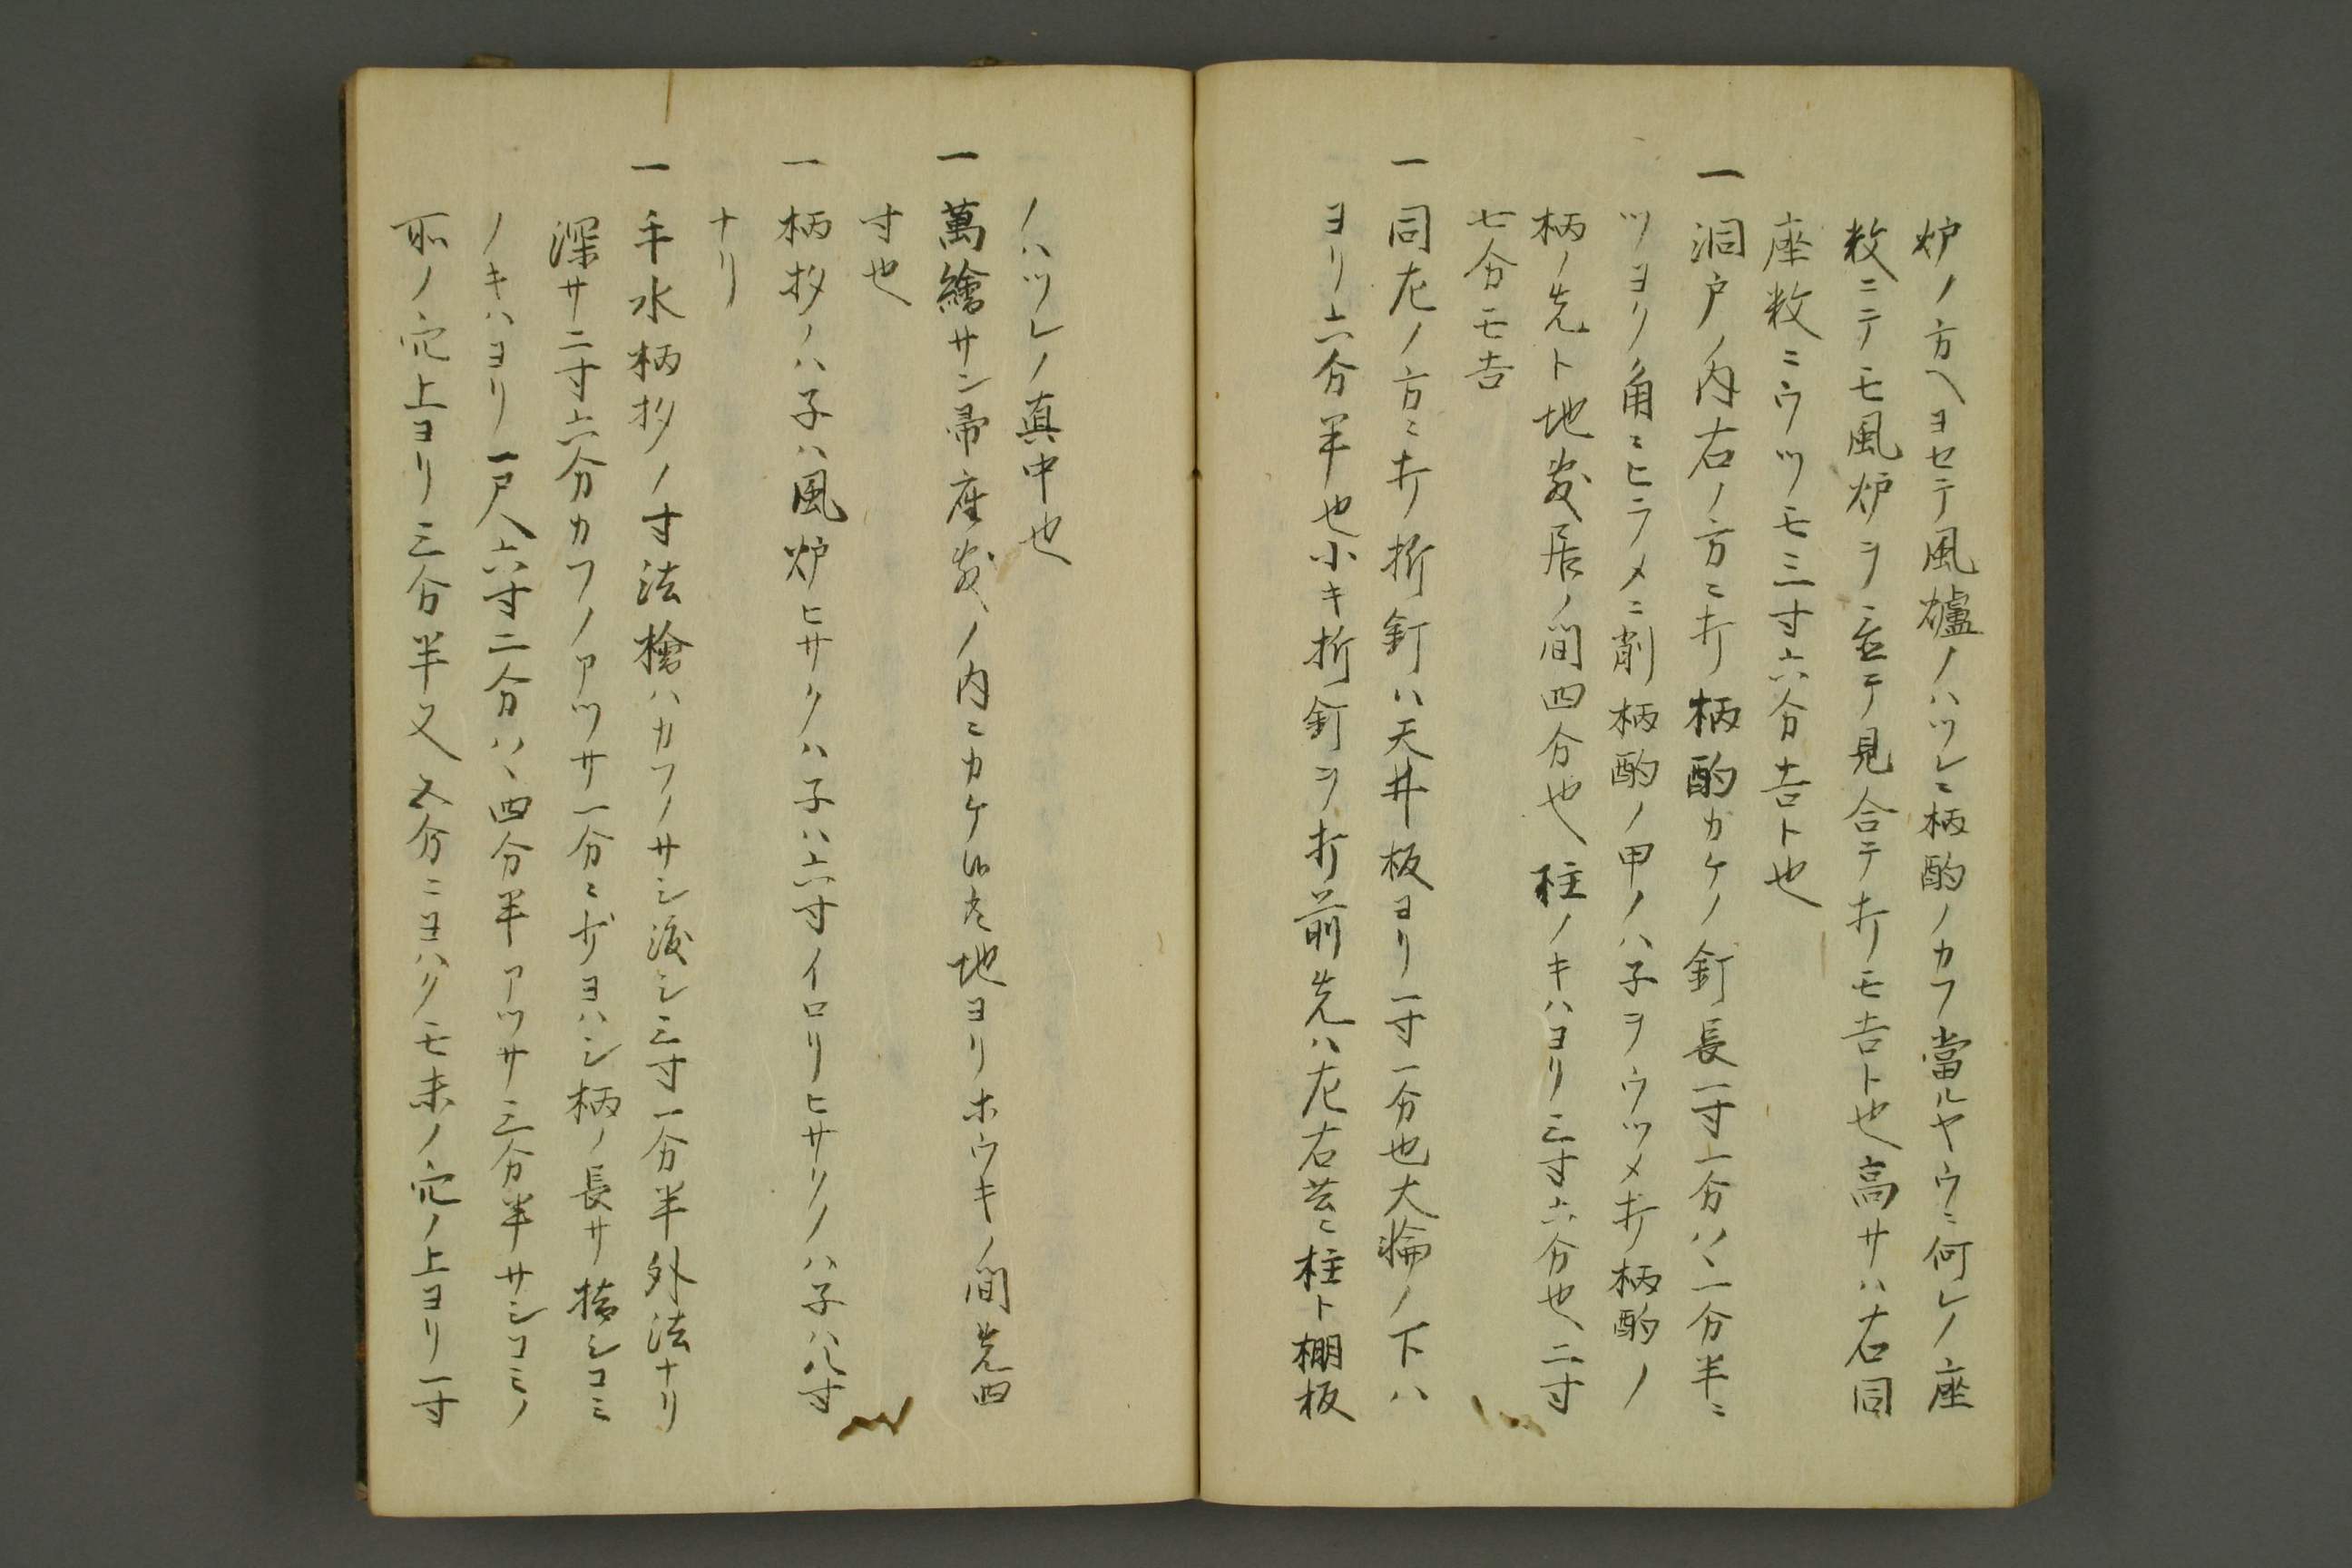 炉ノ方ヘヨセテ風爐ノハツレニ柄酌ノカフ當ルヤウニ何レノ座
敷ニテモ風炉ヲ置テ見合テ打モ吉ト也高サハ右同
座敷ニウツモ三寸六分吉ト也
一洞戸ノ内右ノ方ニ打柄酌カケノ釘長一寸六分ハヽ一分半ニ
ツヨリノ角ニヒラメニ削柄酌ノ甲ノハ子ヲウツメ打柄酌ノ
柄ノ先ト地敷居ノ間四分也柱ノキハヨリ三寸六分也二寸
七分モ吉
一同左ノ方ニ打折釘ハ天井板ヨリ一寸一分也大輪ノ下ハ
ヨリ六分半也小キ折釘ヲ打前先ハ左右共ニ柱ト棚板
ノハツレノ真中也
一萬繪サン帚座敷ノ内ニカケ候ハ地ヨリホウキノ間先四
寸也
一柄杓ノハ子ハ風炉ヒサクハ子ハ六寸イロリヒサクノハ子ハ八寸
ナリ
一手水柄杓ノ寸法檜ハカフノサシ渡シ三寸一分半外法ナリ
深サ二寸六分カフノアツサ一分ニ少ヨハシ柄ノ長サ指シコミ
ノキハヨリ一尺六寸二分ハヽ四分半アツサ三分半サシコミノ
所ノ穴上ヨリ三分半又五分ニヨハクモ末ノ穴ノ上ヨリ一寸